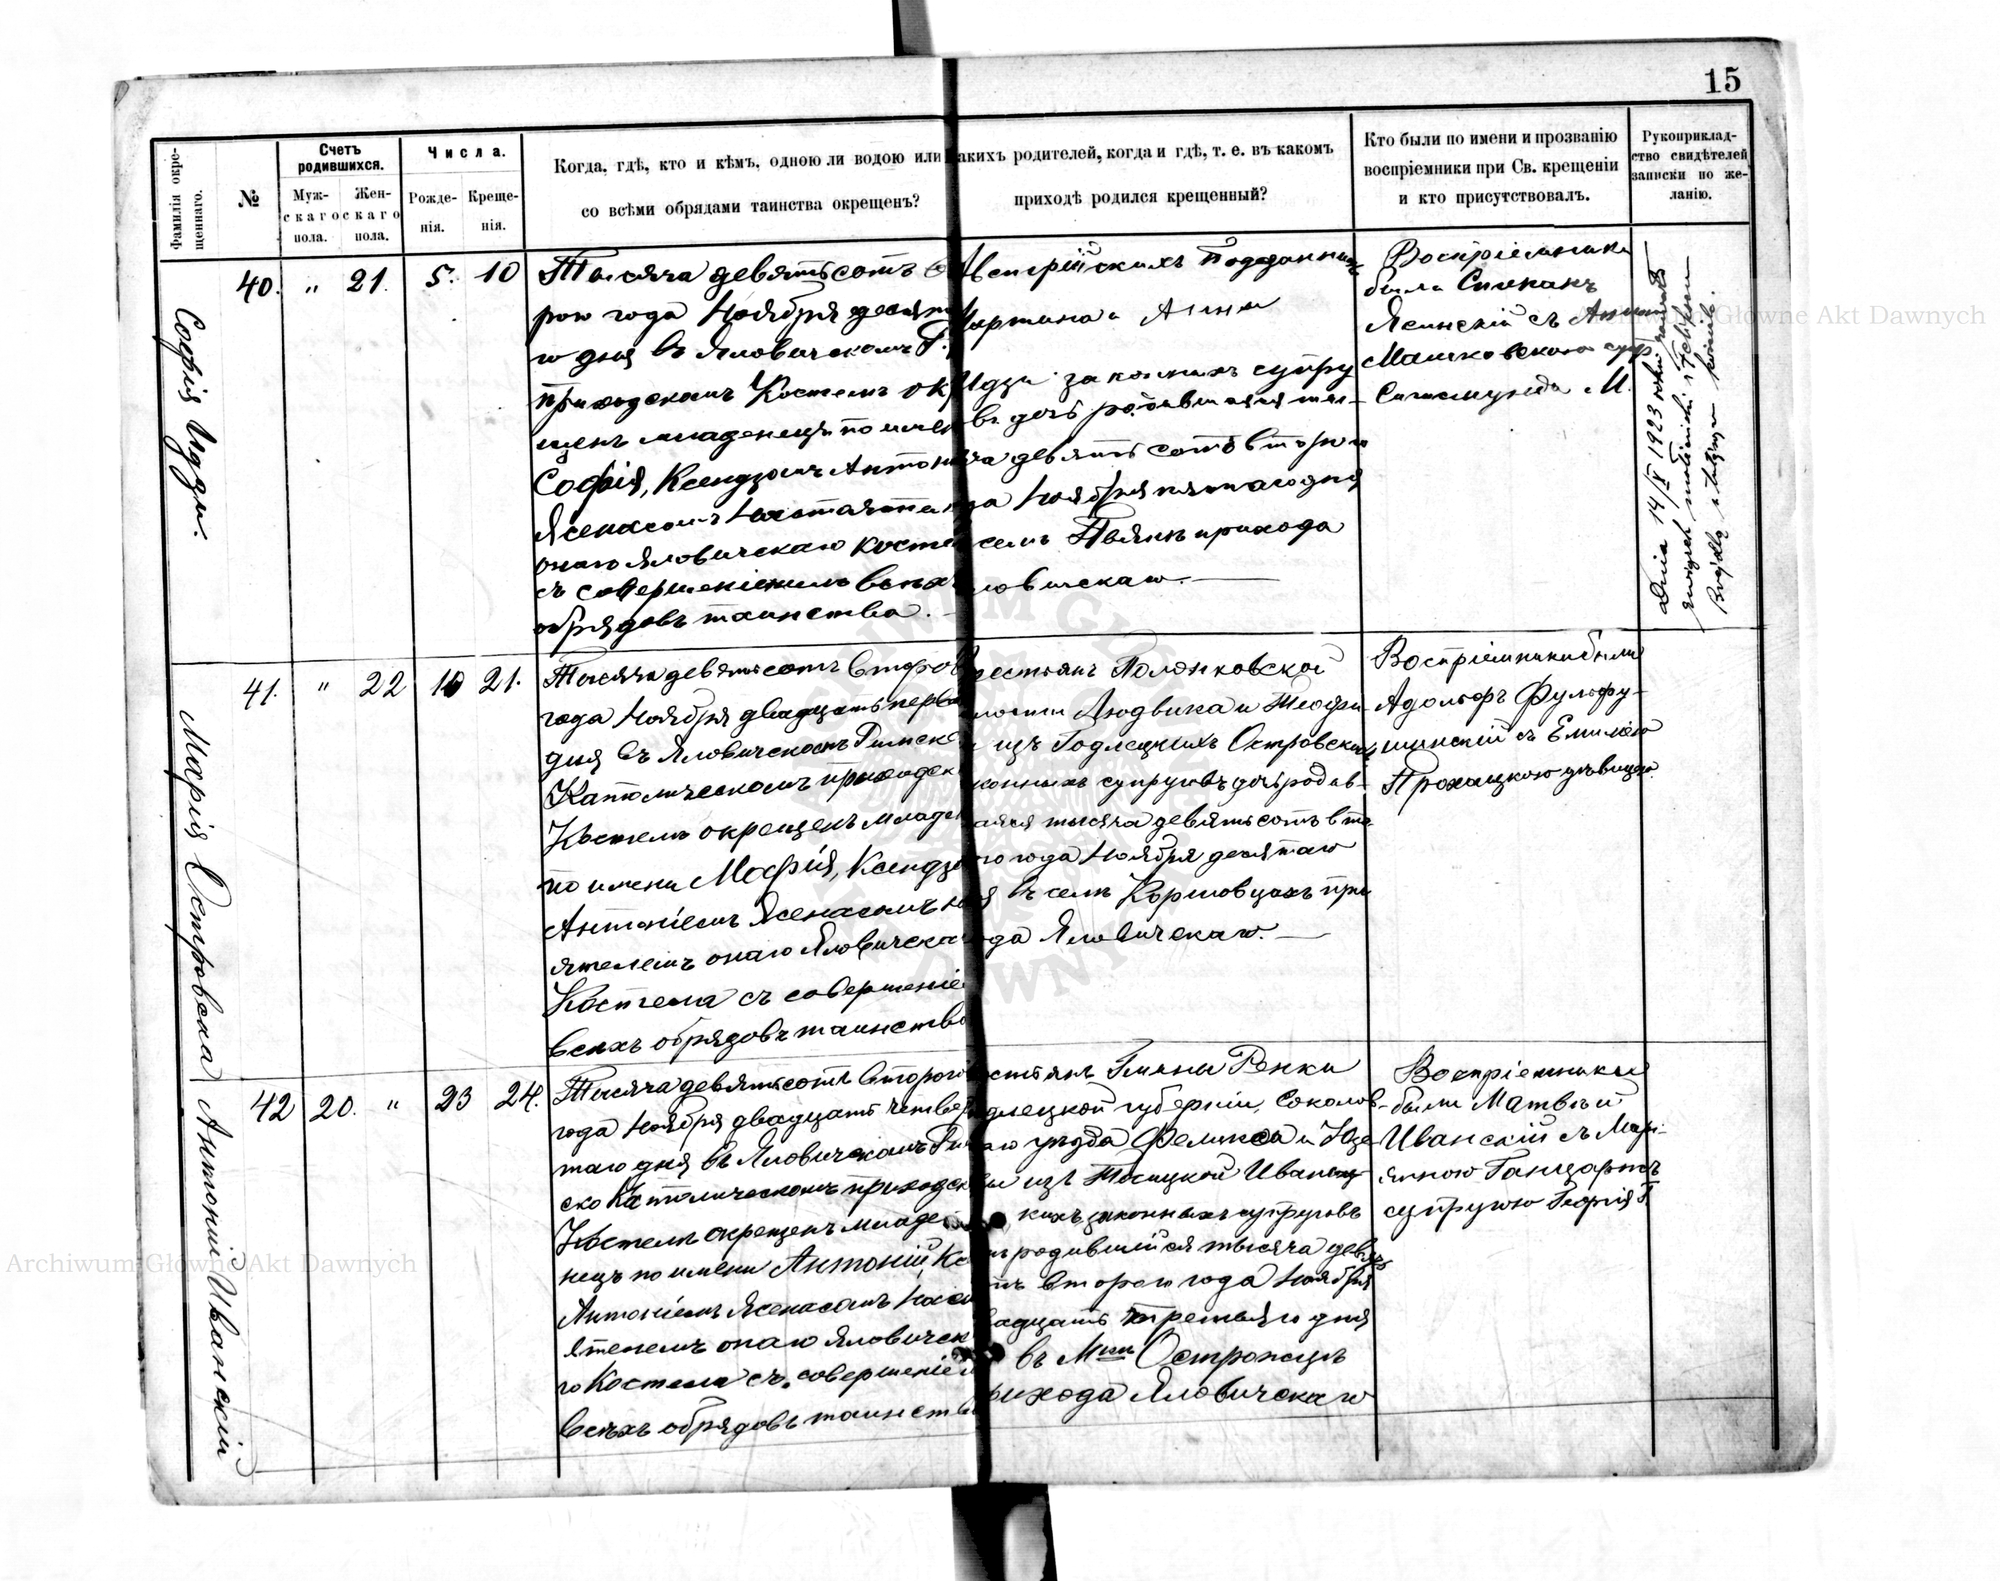 15
Фамилія окре-
щеннаго.
№
Счетъ
родившихся.
Муж-
скаго
пола.
Жен-
скаго
пола.
Числа.
Рожде-
нія.
Креще-
нія.
Когда, гдѣ, кто и кѣмъ, одною ли водою или
со всѣми обрядами таинства окрещенъ?
акихъ родителей, когда и гдѣ, т. е. въ какомъ
приходѣ родился крещенный?
Кто были по имени и прозванію
воспріемники при Св. крещеніи
и кто присутствовалъ.
Рукоприклад-
ство свидѣтелей
записки по же-
ланію.
Софія Идзи.
40. " 21. 5. 10
Тысяча девятьсотъ
рого года Ноября десят
го дня въ Яловичскомъ Р.
приходскомъ Костелѣ окр
щенъ младенецъ по имен
Софія, Ксендзомъ Антоні
Ясенасомъ Настояте
онаго Яловичскаго Косте
съ совершеніемъ всѣхъ
обрядовъ таинства.
Австрійскихъ Подданныхъ
Мартина и Анны
Идзи законныхъ супру
въ дочь родившаяся ты-
ча девятьсотъ второго
да Ноября пятаго дня
селѣ прихода
ловичскаго.
Воспріемники
были Степанъ
Ясинскій съ
Машковскою
Сигизмунда М.
Dnia 14/X 1923
Марія Островска
41. " 22 10 21.
Тысяча девятьсотъ второ
года Ноября двадцать перва
дня въ Яловичскомъ Римско
Католическомъ приходск
Костелѣ окрещенъ младен
по имени Марія, Ксендзо
Антоніемъ Ясенасомъ на
ятелемъ онаго Яловичска
Костела съ совершеніе
всѣхъ обрядовъ таинства
рестьянъ Полонковской
лости Людвика и Теофи-
и изъ Годлецкихъ Островских
конныхъ супруговъ дочь родив-
аяся тысяча девятьсотъ вто
го года Ноября десятаго
я въ селѣ Коршовцахъ при
ода Яловичскаго.
Воспріемники были
Адольфъ
съ Емиліею
Прохацкою дѣвицею.
Антоній Иванскій
42 20. " 23 24.
Тысяча девятьсотъ второго
года Ноября двадцать четвер
таго дня въ Яловичскомъ Рим
ско Католическомъ приходск
Костелѣ окрещенъ младе
нецъ по имени Антоній, Кс
Антоніемъ Ясенасомъ Наст
ятелемъ онаго Яловичск
го Костела съ совершеніем
всѣхъ обрядовъ таинств
естьянъ Гмины Репки
длецкой губерніи, Соколов-
аго уѣзда Феликса и Юзе
изъ Иванс
кихъ законныхъ супруговъ
нъ родившійся тысяча девять
отъ второго года Ноября
вадцать третьяго дня
въ Мѣст. Острожцѣ
рихода Яловичскаго
Воспріемники
были Матвѣй
Иванскій съ Марі-
янною Ганцаржъ
супругою Георгія Г.
Archiwum Główne Akt Dawnych
Archiwum Główne Akt Dawnych